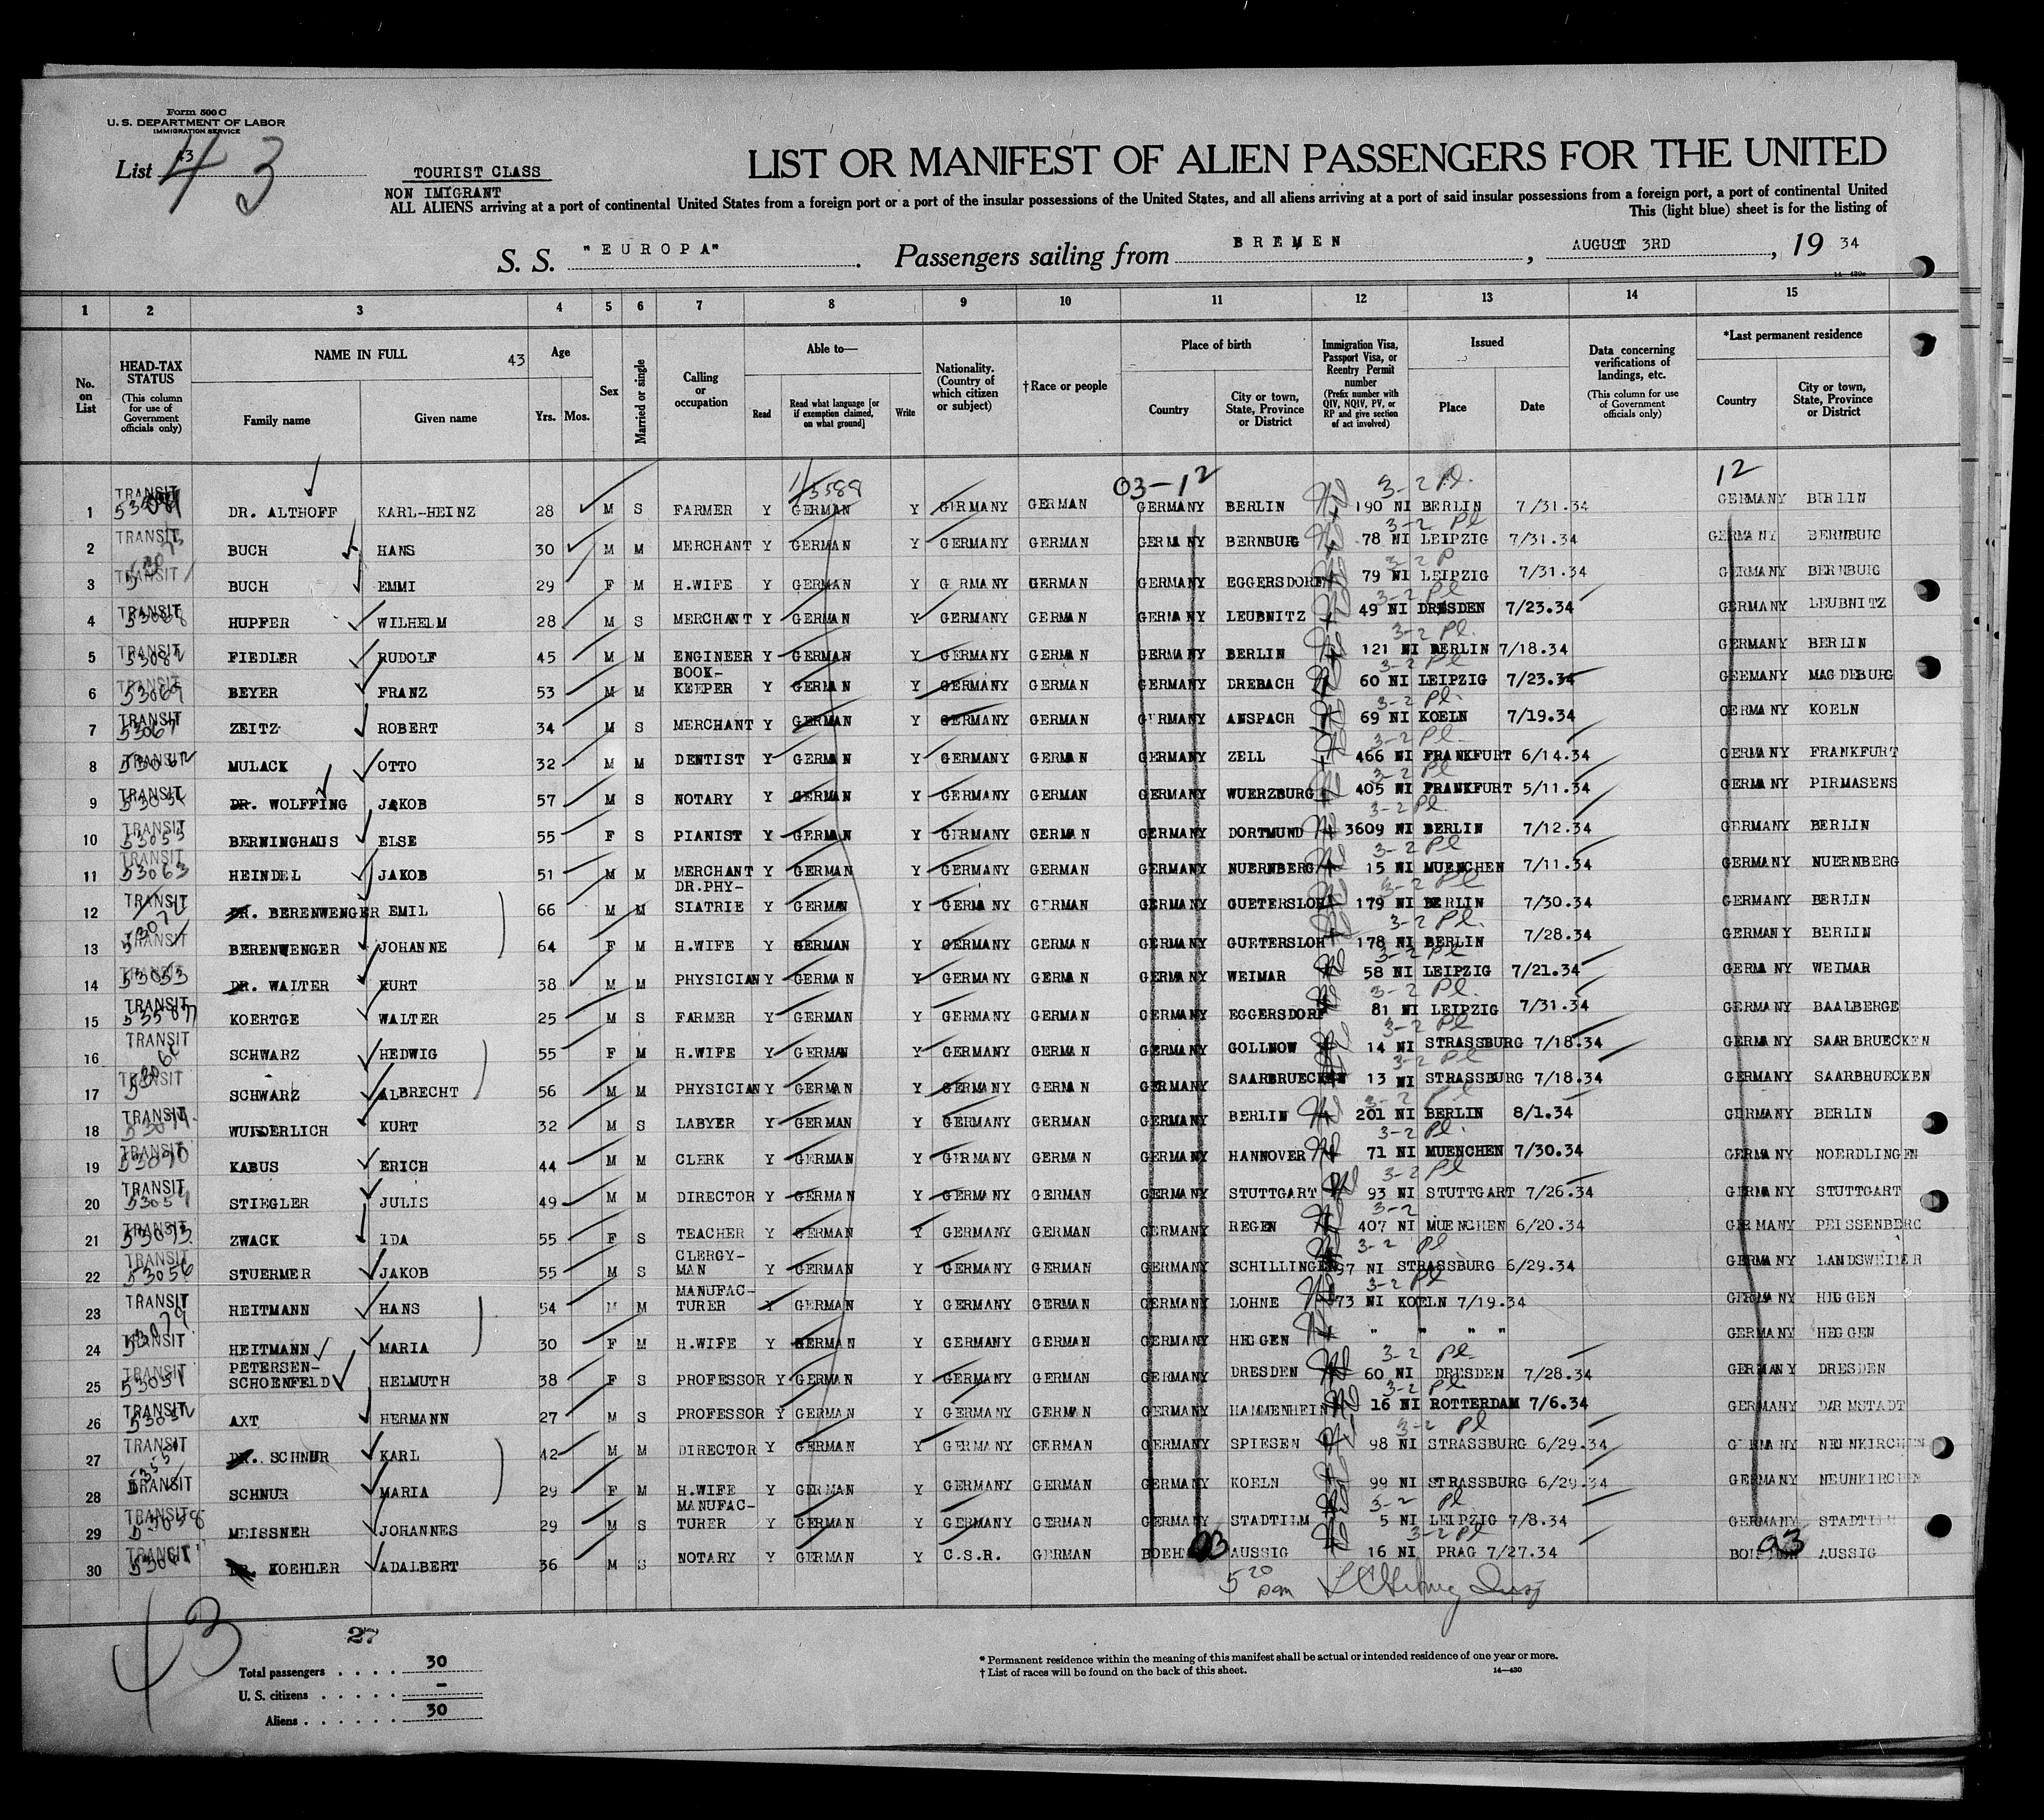 Form 500 C
U. S. DEPARTMENT OF LABOR
IMMIGRATION SERVICE
List 43
43
TOURIST CLASS
NON IMIGRANT
LIST OR MANIFEST OF ALIEN PASSENGERS FOR THE UNITED
ALL ALIENS arriving at a port of continental United States from a foreign port or a port of the insular possessions of the United States, and all aliens arriving at a port of said insular possessions from a foreign port, a port of continental United
This (light blue) sheet is for the listing of
S. S. "EUROPA" Passengers sailing from BREMEN, AUGUST 3RD, 19 34
1 2 3 4 5 6 7 8 9 10 11 12 13 14 15
No. on List
HEAD-TAX STATUS (This column for use of Government officials only)
NAME IN FULL 43
Family name Given name
Age Yrs. Mos.
Sex
Married or single
Calling or occupation
Able to—
Read Read what language [or if exemption claimed, on what ground] Write
Nationality. (Country of which citizen or subject)
†Race or people
Place of birth
Country City or town, State, Province or District
Immigration Visa, Passport Visa, or Reentry Permit number (Prefix number with QIV, NQIV, PV, or RP and give section of act involved)
Issued
Place Date
Data concerning verifications of landings, etc. (This column for use of Government officials only)
*Last permanent residence
Country City or town, State, Province or District
03-12 3-2 Pl. 12
1 TRANSIT DR. ALTHOFF KARL-HEINZ 28 M S FARMER Y GERMAN Y GERMANY GERMAN GERMANY BERLIN 190 NI BERLIN 7/31.34 GERMANY BERLIN
2 TRANSIT BUCH HANS 30 M M MERCHANT Y GERMAN Y GERMANY GERMAN GERMANY BERNBURG 78 NI LEIPZIG 7/31.34 GERMANY BERNBURG
3 TRANSIT BUCH EMMI 29 F M H.WIFE Y GERMAN Y GERMANY GERMAN GERMANY EGGERSDORF 79 NI LEIPZIG 7/31.34 GERMANY BERNBURG
4 TRANSIT HUPFER WILHELM 28 M S MERCHANT Y GERMAN Y GERMANY GERMAN GERMANY LEUBNITZ 49 NI DRESDEN 7/23.34 GERMANY LEUBNITZ
5 TRANSIT 53082 FIEDLER RUDOLF 45 M M ENGINEER Y GERMAN Y GERMANY GERMAN GERMANY BERLIN 121 NI BERLIN 7/18.34 GERMANY BERLIN
6 TRANSIT 53069 BEYER FRANZ 53 M M BOOK-KEEPER Y GERMAN Y GERMANY GERMAN GERMANY DREBACH 60 NI LEIPZIG 7/23.34 GERMANY MAGDEBURG
7 TRANSIT 53067 ZEITZ ROBERT 34 M S MERCHANT Y GERMAN Y GERMANY GERMAN GERMANY ANSPACH 69 NI KOELN 7/19.34 GERMANY KOELN
8 TRANSIT MULACK OTTO 32 M M DENTIST Y GERMAN Y GERMANY GERMAN GERMANY ZELL 466 NI FRANKFURT 6/14.34 GERMANY FRANKFURT
9 TRANSIT DR. WOLFFING JAKOB 57 M S NOTARY Y GERMAN Y GERMANY GERMAN GERMANY WUERZBURG 405 NI FRANKFURT 5/11.34 GERMANY PIRMASENS
10 TRANSIT 53055 BERNINGHAUS ELSE 55 F S PIANIST Y GERMAN Y GERMANY GERMAN GERMANY DORTMUND 3609 NI BERLIN 7/12.34 GERMANY BERLIN
11 TRANSIT 53063 HEINDEL JAKOB 51 M M MERCHANT Y GERMAN Y GERMANY GERMAN GERMANY NUERNBERG 15 NI MUENCHEN 7/11.34 GERMANY NUERNBERG
12 TRANSIT DR. BERENWENGER EMIL 66 M M DR.PHY-SIATRIE Y GERMAN Y GERMANY GERMAN GERMANY GUETERSLOH 179 NI BERLIN 7/30.34 GERMANY BERLIN
13 TRANSIT BERENWENGER JOHANNE 64 F M H.WIFE Y GERMAN Y GERMANY GERMAN GERMANY GUETERSLOH 178 NI BERLIN 7/28.34 GERMANY BERLIN
14 TRANSIT 53053 DR. WALTER KURT 38 M M PHYSICIAN Y GERMAN Y GERMANY GERMAN GERMANY WEIMAR 58 NI LEIPZIG 7/21.34 GERMANY WEIMAR
15 TRANSIT KOERTGE WALTER 25 M S FARMER Y GERMAN Y GERMANY GERMAN GERMANY EGGERSDORF 81 NI LEIPZIG 7/31.34 GERMANY BAALBERGE
16 TRANSIT SCHWARZ HEDWIG 55 F M H.WIFE Y GERMAN Y GERMANY GERMAN GERMANY GOLLNOW 14 NI STRASSBURG 7/18.34 GERMANY SAARBRUECKEN
17 TRANSIT SCHWARZ ALBRECHT 56 M M PHYSICIAN Y GERMAN Y GERMANY GERMAN GERMANY SAARBRUECKEN 13 NI STRASSBURG 7/18.34 GERMANY SAARBRUECKEN
18 TRANSIT WUNDERLICH KURT 32 M S LABYER Y GERMAN Y GERMANY GERMAN GERMANY BERLIN 201 NI BERLIN 8/1.34 GERMANY BERLIN
19 TRANSIT 53070 KABUS ERICH 44 M M CLERK Y GERMAN Y GERMANY GERMAN GERMANY HANNOVER 71 NI MUENCHEN 7/30.34 GERMANY NOERDLINGEN
20 TRANSIT STIEGLER JULIS 49 M M DIRECTOR Y GERMAN Y GERMANY GERMAN GERMANY STUTTGART 93 NI STUTTGART 7/26.34 GERMANY STUTTGART
21 TRANSIT 53073 ZWACK IDA 55 F S TEACHER Y GERMAN Y GERMANY GERMAN GERMANY REGEN 407 NI MUENCHEN 6/20.34 GERMANY PEISSENBERG
22 TRANSIT 53056 STUERMER JAKOB 55 M S CLERGY-MAN Y GERMAN Y GERMANY GERMAN GERMANY SCHILLINGEN 97 NI STRASSBURG 6/29.34 GERMANY LANDSWEILER
23 TRANSIT HEITMANN HANS 54 M M MANUFAC-TURER Y GERMAN Y GERMANY GERMAN GERMANY LOHNE 73 NI KOELN 7/19.34 GERMANY HEGGEN
24 TRANSIT HEITMANN MARIA 30 F M H.WIFE Y GERMAN Y GERMANY GERMAN GERMANY HEGGEN " " " " GERMANY HEGGEN
25 TRANSIT 53051 PETERSEN-SCHOENFELD HELMUTH 38 F S PROFESSOR Y GERMAN Y GERMANY GERMAN GERMANY DRESDEN 60 NI DRESDEN 7/28.34 GERMANY DRESDEN
26 TRANSIT AXT HERMANN 27 M S PROFESSOR Y GERMAN Y GERMANY GERMAN GERMANY HAMMENHEIN 16 NI ROTTERDAM 7/6.34 GERMANY DARMSTADT
27 TRANSIT DR. SCHNUR KARL 42 M M DIRECTOR Y GERMAN Y GERMANY GERMAN GERMANY SPIESEN 98 NI STRASSBURG 6/29.34 GERMANY NEUNKIRCHEN
28 TRANSIT SCHNUR MARIA 29 F M H.WIFE Y GERMAN Y GERMANY GERMAN GERMANY KOELN 99 NI STRASSBURG 6/29.34 GERMANY NEUNKIRCHEN
29 TRANSIT MEISSNER JOHANNES 29 M S MANUFAC-TURER Y GERMAN Y GERMANY GERMAN GERMANY STADTILM 5 NI LEIPZIG 7/8.34 GERMANY STADTILM
30 TRANSIT DR. KOEHLER ADALBERT 36 M S NOTARY Y GERMAN Y C.S.R. GERMAN 03 AUSSIG 16 NI PRAG 7/27.34 03 AUSSIG
43
27
Total passengers . . . . 30
U. S. citizens . . . . . -
Aliens . . . . . . 30
* Permanent residence within the meaning of this manifest shall be actual or intended residence of one year or more.
† List of races will be found on the back of this sheet.
14—430